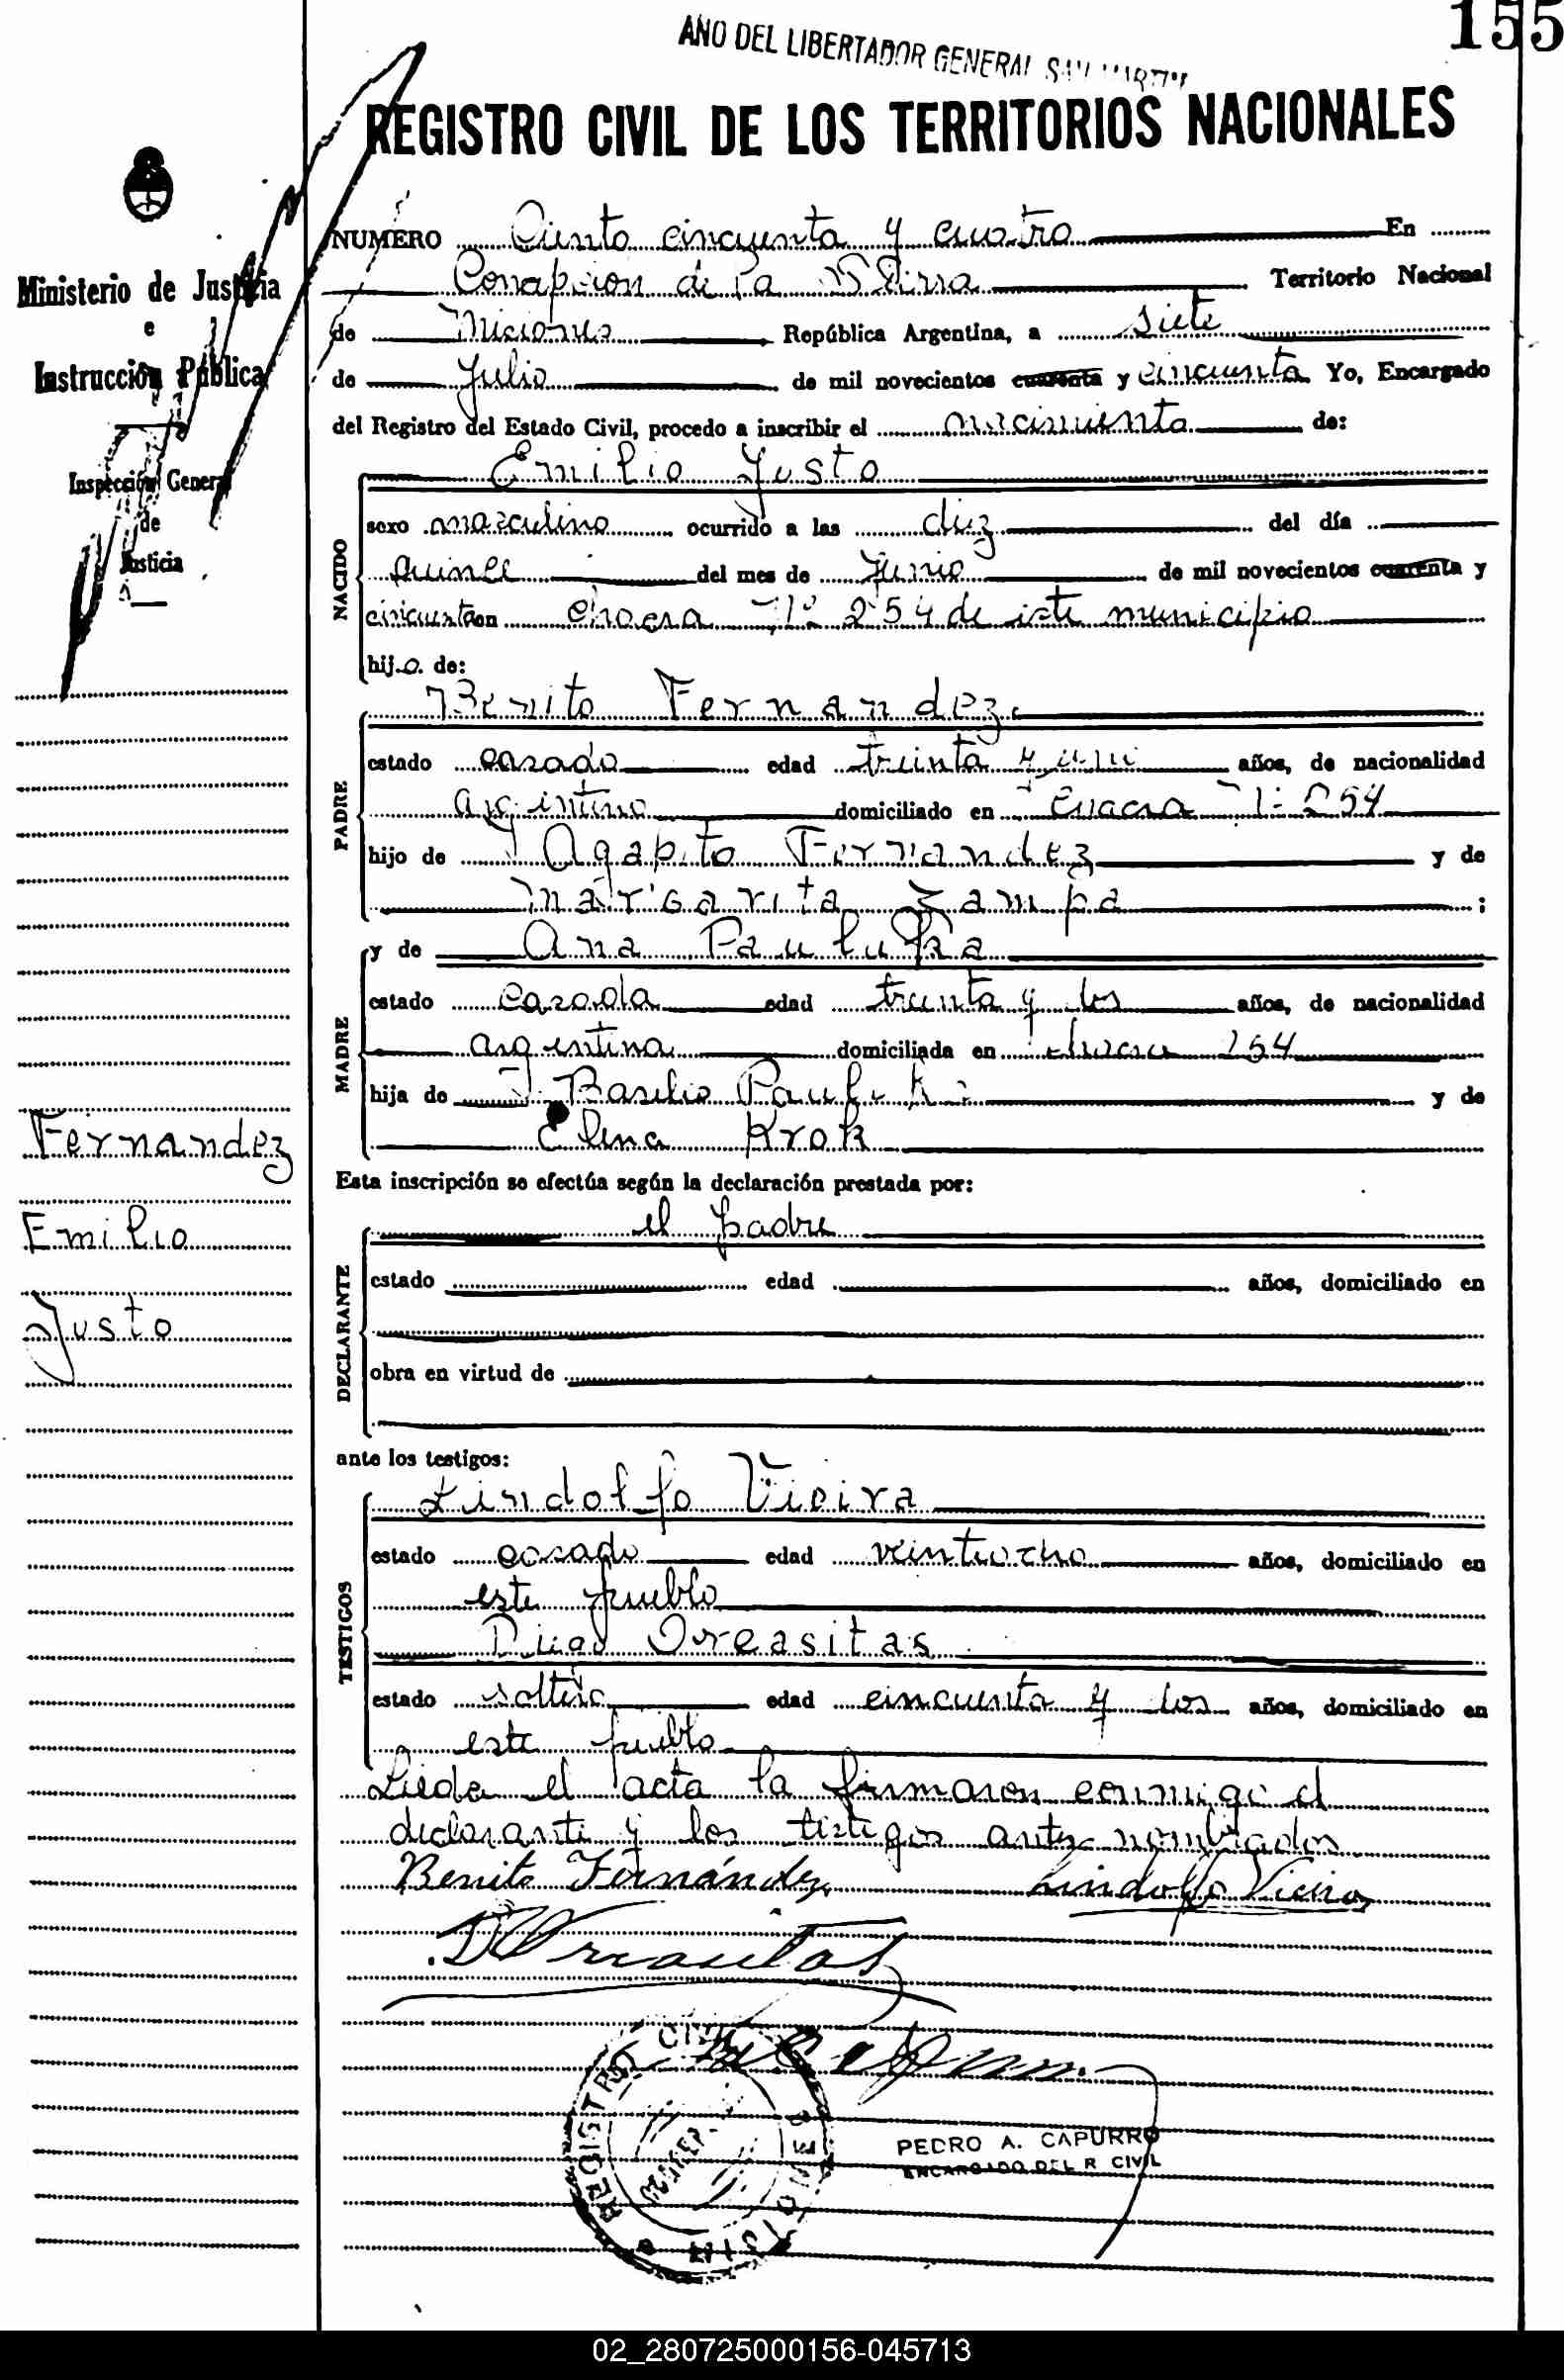 155
AÑO DEL LIBERTADOR GENERAL SAN MARTIN
REGISTRO CIVIL DE LOS TERRITORIOS NACIONALES
Ministerio de Justicia
e
Instrucción Pública
Inspección General
de
Justicia
NUMERO Ciento cincuenta y cuatro En
Concepcion de la Sierra Territorio Nacional
de Misiones República Argentina, a siete
de Julio de mil novecientos cuarenta y cincuenta Yo, Encargado
del Registro del Estado Civil, procedo a inscribir el nacimiento de:
NACIDO
Emilio Justo
sexo masculino ocurrido a las diez del día
quince del mes de Junio de mil novecientos cuarenta y
cincuenta en chacra Nº 254 de este municipio
hijo de:
PADRE
Benito Fernandez
estado casado edad treinta y un años, de nacionalidad
argentino domiciliado en chacra Nº 254
hijo de Agapito Fernandez y de
Margarita Zampa ;
MADRE
y de Ana Pauluka
estado casada edad treinta y dos años, de nacionalidad
argentina domiciliada en chacra 254
hija de Basilio y de
Elena Krok
Fernandez
Emilio
Justo
Esta inscripción se efectúa según la declaración prestada por:
DECLARANTE
el padre
estado edad años, domiciliado en
obra en virtud de
ante los testigos:
TESTIGOS
Lindolfo Vieira
estado casado edad veintiocho años, domiciliado en
este pueblo
Diego Oreasitas
estado soltero edad cincuenta y dos años, domiciliado en
este pueblo
Lieda el acta la firmaron conmigo el
declarante y los testigos antes nombrados
Benito Fernández Lindolfo Vieira
REGISTRO CIVIL
MISIONES
PEDRO A. CAPURRO
ENCARGADO DEL R CIVIL
02_280725000156-045713